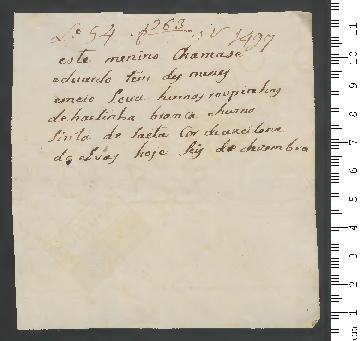 Lº 54 f 263 v 1497
este menino Chamase
eduardo tem des mezes
emeio Leva humas roupinhas
de baetinha branca huma
Sinta de Saeta Cor de
de elvas hoje Seis de dezembro